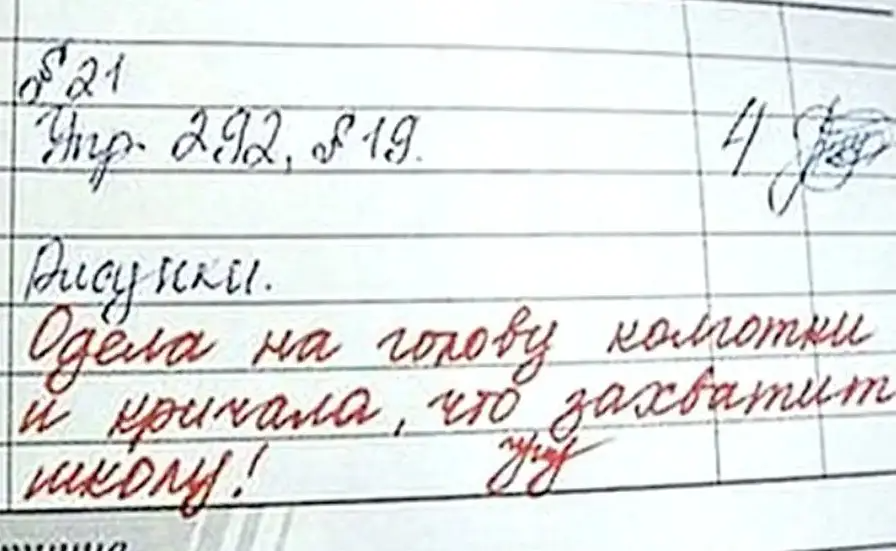 § 21
Упр. 292, § 19. 4
Рисунки.
Одела на голову колготки
и кричала, что захватит
школу!